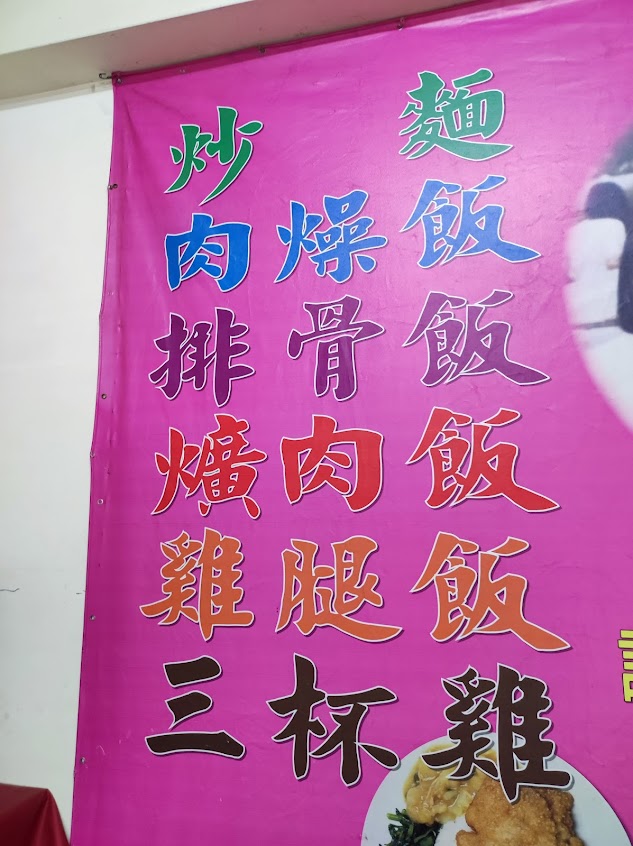 炒麵
肉燥飯
排骨飯
爌肉飯
雞腿飯
三杯雞